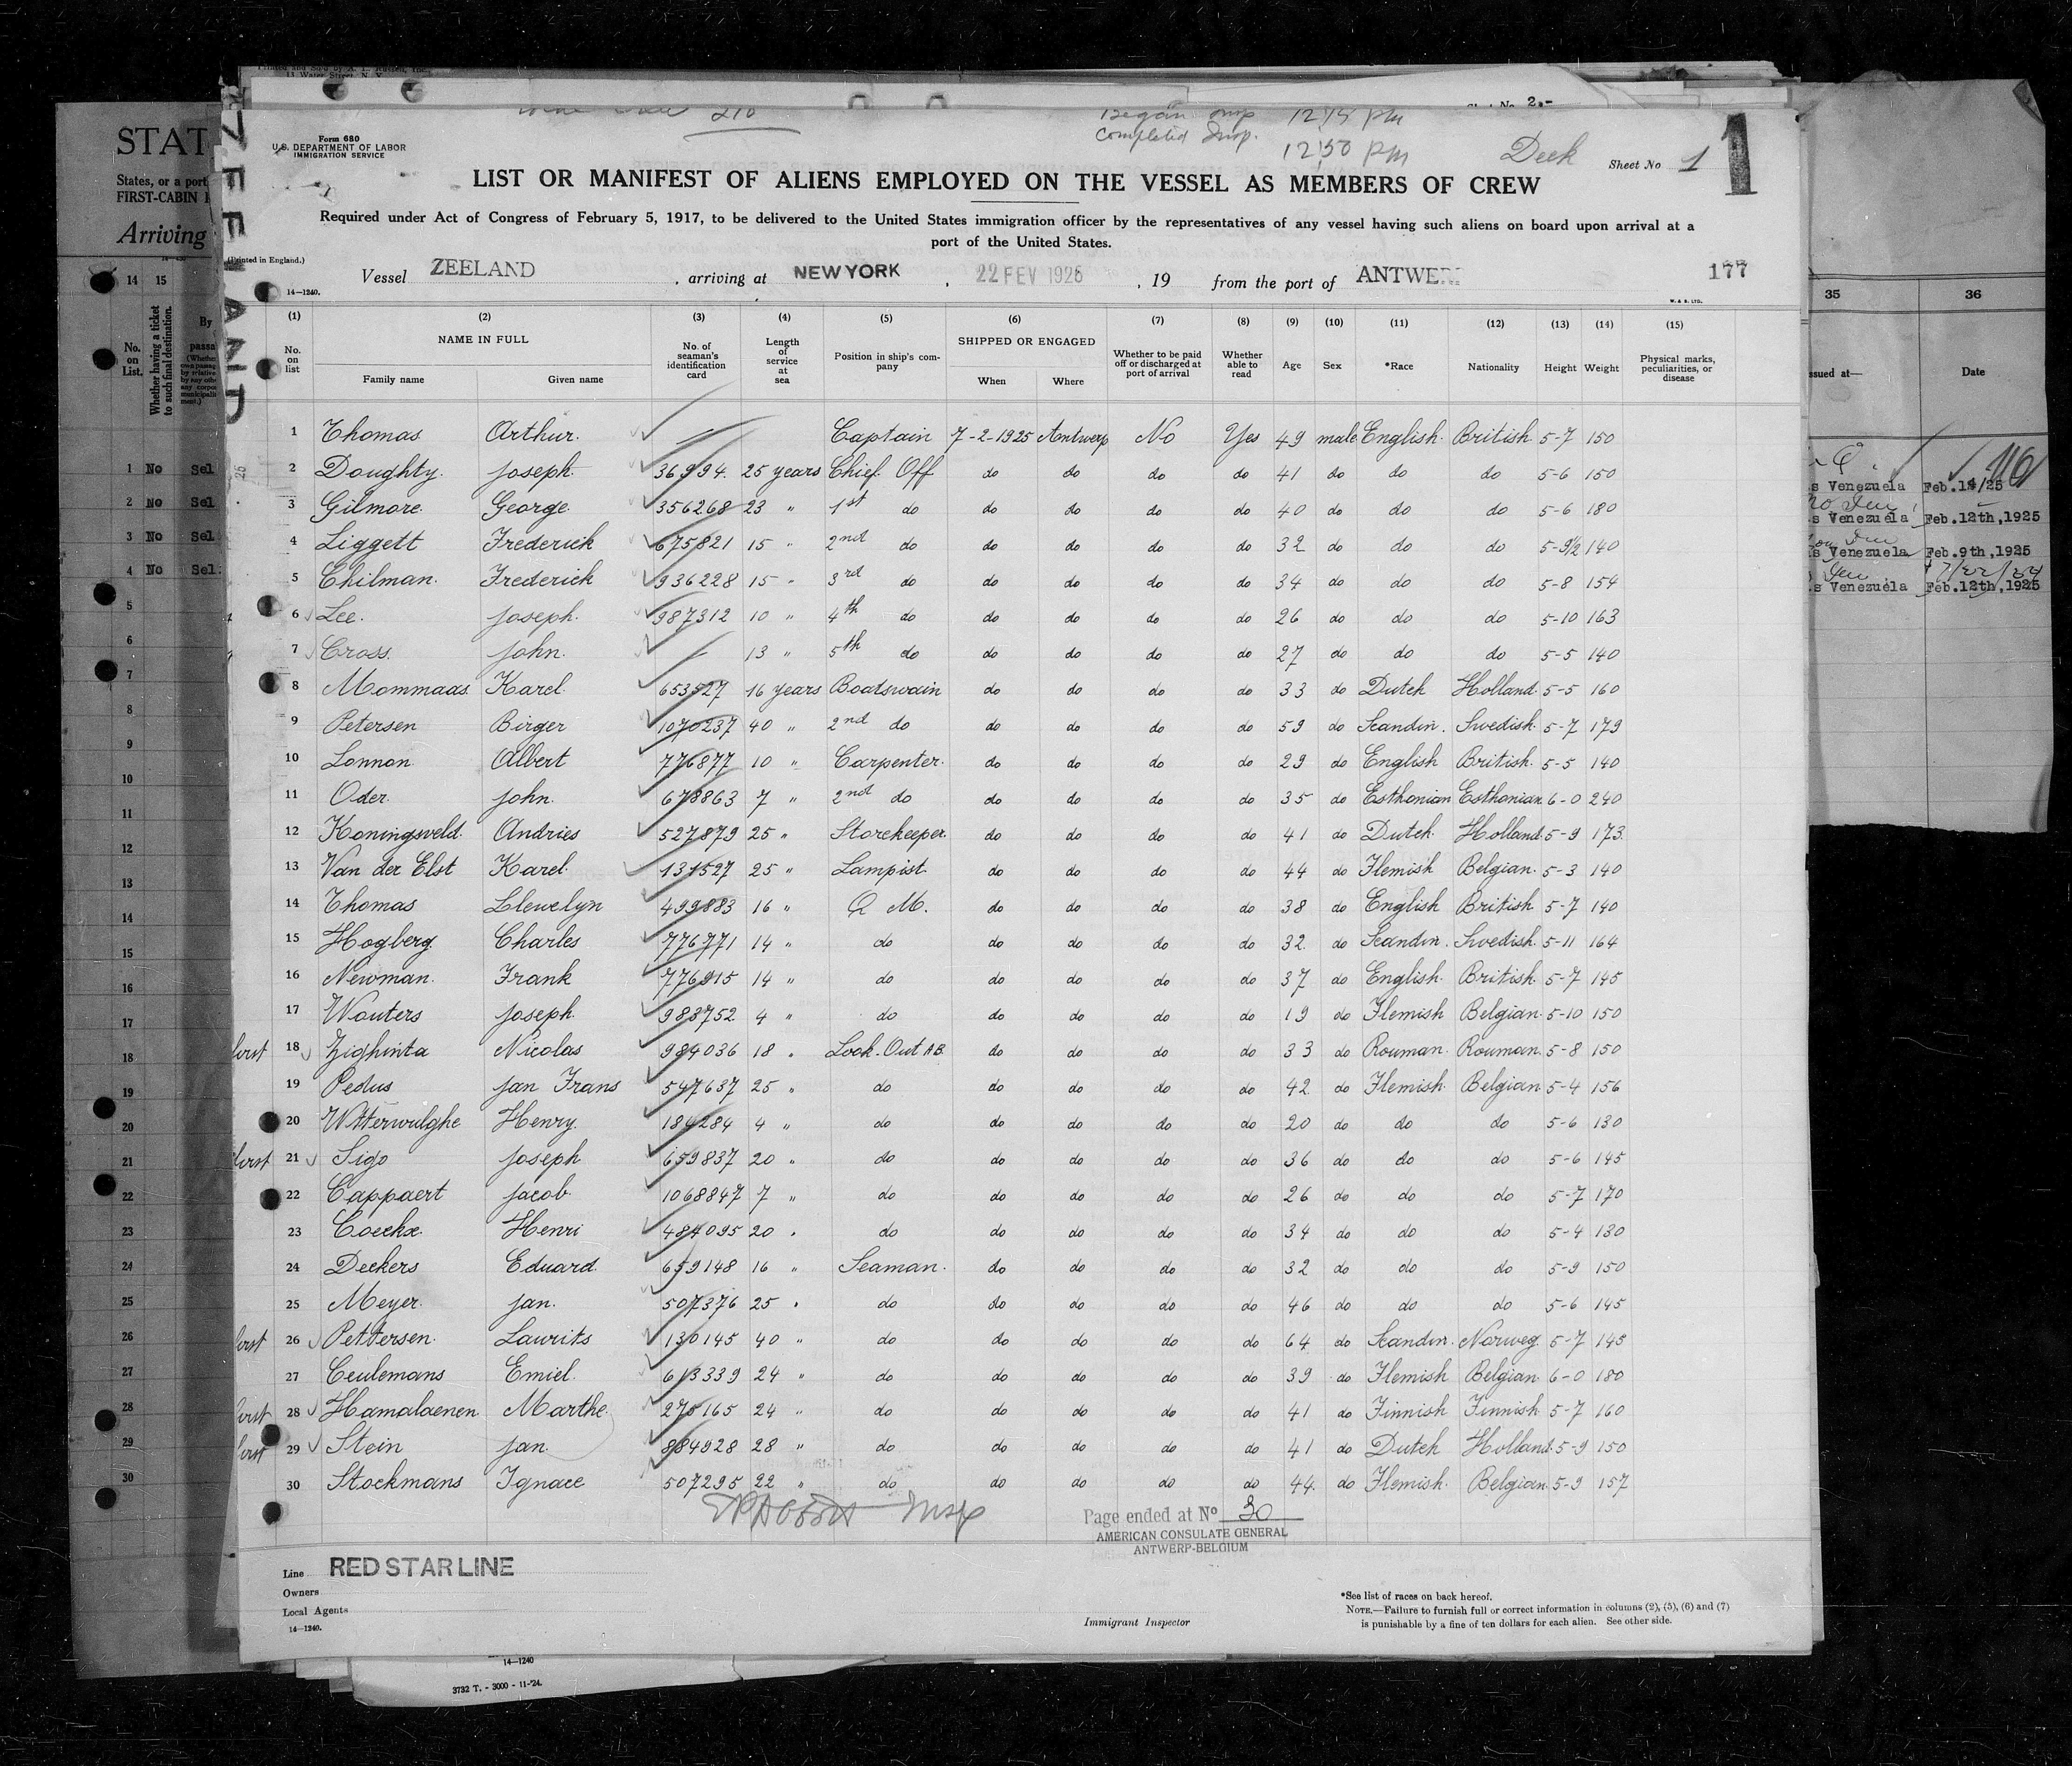 Began Insp 12/15 pm
Completed Insp. 12/50 pm
Deck
Form 680
U.S. DEPARTMENT OF LABOR
IMMIGRATION SERVICE
Sheet No 1
1
LIST OR MANIFEST OF ALIENS EMPLOYED ON THE VESSEL AS MEMBERS OF CREW
Required under Act of Congress of February 5, 1917, to be delivered to the United States immigration officer by the representatives of any vessel having such aliens on board upon arrival at a
port of the United States.
(Printed in England.)
Vessel ZEELAND , arriving at NEW YORK , 22 FEV 1925 , 19 from the port of ANTWE 177
14—1240.
(1) (2) (3) (4) (5) (6) (7) (8) (9) (10) (11) (12) (13) (14) (15)
No. on list NAME IN FULL Family name Given name No. of seaman's identification card Length of service at sea Position in ship's company SHIPPED OR ENGAGED When Where Whether to be paid off or discharged at port of arrival Whether able to read Age Sex *Race Nationality Height Weight Physical marks, peculiarities, or disease
1 Thomas Arthur. — Captain 7-2-1925 Antwerp No Yes 49 male English British 5-7 150
2 Doughty. Joseph 36994. 25 years Chief Off do do do do 41 do do do 5-6 150
3 Gilmore. George 356268 23 " 1st do do do do do 40 do do do 5-6 180
4 Liggett Frederick 675821 15 " 2nd do do do do do 32 do do do 5-9½ 140
5 Chilman. Frederick 936228 15 " 3rd do do do do do 34 do do do 5-8 154
6 Lee. Joseph. 987312 10 " 4th do do do do do 26 do do do 5-10 163
7 Cross. John. — 13 " 5th do do do do do 27 do do do 5-5 140
8 Mommaas Karel 653527 16 years Boatswain do do do do 33 do Dutch Holland 5-5 160
9 Petersen Birger 1070237 40 " 2nd do do do do do 59 do Scandin. Swedish. 5-7 179
10 Lonnon Albert 776877 10 " Carpenter. do do do do 29 do English British. 5-5 140
11 Oder. John. 678863 7 " 2nd do do do do do 35 do Esthonian Esthonian 6-0 240
12 Koningsveld. Andries 527879 25 " Storekeeper. do do do do 41 do Dutch. Holland 5-9 173.
13 Van der Elst Karel. 131527 25 " Lampist. do do do do 44 do Flemish Belgian. 5-3 140
14 Thomas Llewelyn 499883 16 " Q M. do do do do 38 do English British 5-7 140
15 Hogberg. Charles 776771 14 " do do do do do 32 do Scandin. Swedish. 5-11 164
16 Newman. Frank 776915 14 " do do do do do 37 do English. British. 5-7 145
17 Wouters Joseph 983752 4 " do do do do do 19 do Flemish Belgian. 5-10 150
18 Zighinta Nicolas 984036 18 " Look-Out AB. do do do do 33 do Rouman. Rouman. 5-8 150
19 Pedus Jan Frans 547637 25 " do do do do do 42 do Flemish Belgian 5-4 156
20 Witterwulghe Henry. 184284 4 " do do do do do 20 do do do 5-6 130
21 Sigo Joseph 659837 20 " do do do do do 36 do do do 5-6 145
22 Cappaert Jacob 1068847 7 " do do do do do 26 do do do 5-7 170
23 Coeckx. Henri 484095 20 " do do do do do 34 do do do 5-4 130
24 Deckers Eduard. 659148 16 " Seaman. do do do do 32 do do do 5-9 150
25 Meyer. Jan. 507376 25 " do do do do do 46 do do do 5-6 145
26 Pettersen. Laurits 130145 40 " do do do do do 64 do Scandin. Norweg. 5-7 145
27 Ceulemans Emiel. 613339 24 " do do do do do 39 do Flemish Belgian. 6-0 180
28 Hamalaenen Marthe. 275165 24 " do do do do do 41 do Finnish Finnish 5-7 160
29 Stein Jan. 884928 28 " do do do do do 41 do Dutch Holland. 5-9 150
30 Stockmans Ignace 507295 22 " do do do do do 44. do Flemish Belgian. 5-9 157
Insp
Page ended at No 30
AMERICAN CONSULATE GENERAL
ANTWERP-BELGIUM
Line RED STAR LINE
Owners
Local Agents
14—1240.
Immigrant Inspector
*See list of races on back hereof.
NOTE.—Failure to furnish full or correct information in columns (2), (5), (6) and (7)
is punishable by a fine of ten dollars for each alien. See other side.
14—1240
3732 T. - 3000 - 11-'24.
ZEELAND
STAT
States, or a port
FIRST-CABIN
Arriving
14 15
No. on List.
Whether having a ticket to such final destination.
By
1 No Sel
2 No Sel
3 No Sel
4 No Sel
35 36
ssued at— Date
s Venezuela Feb.14/25
s Venezuela Feb.12th,1925
s Venezuela Feb.9th,1925
s Venezuela Feb.12th,1925